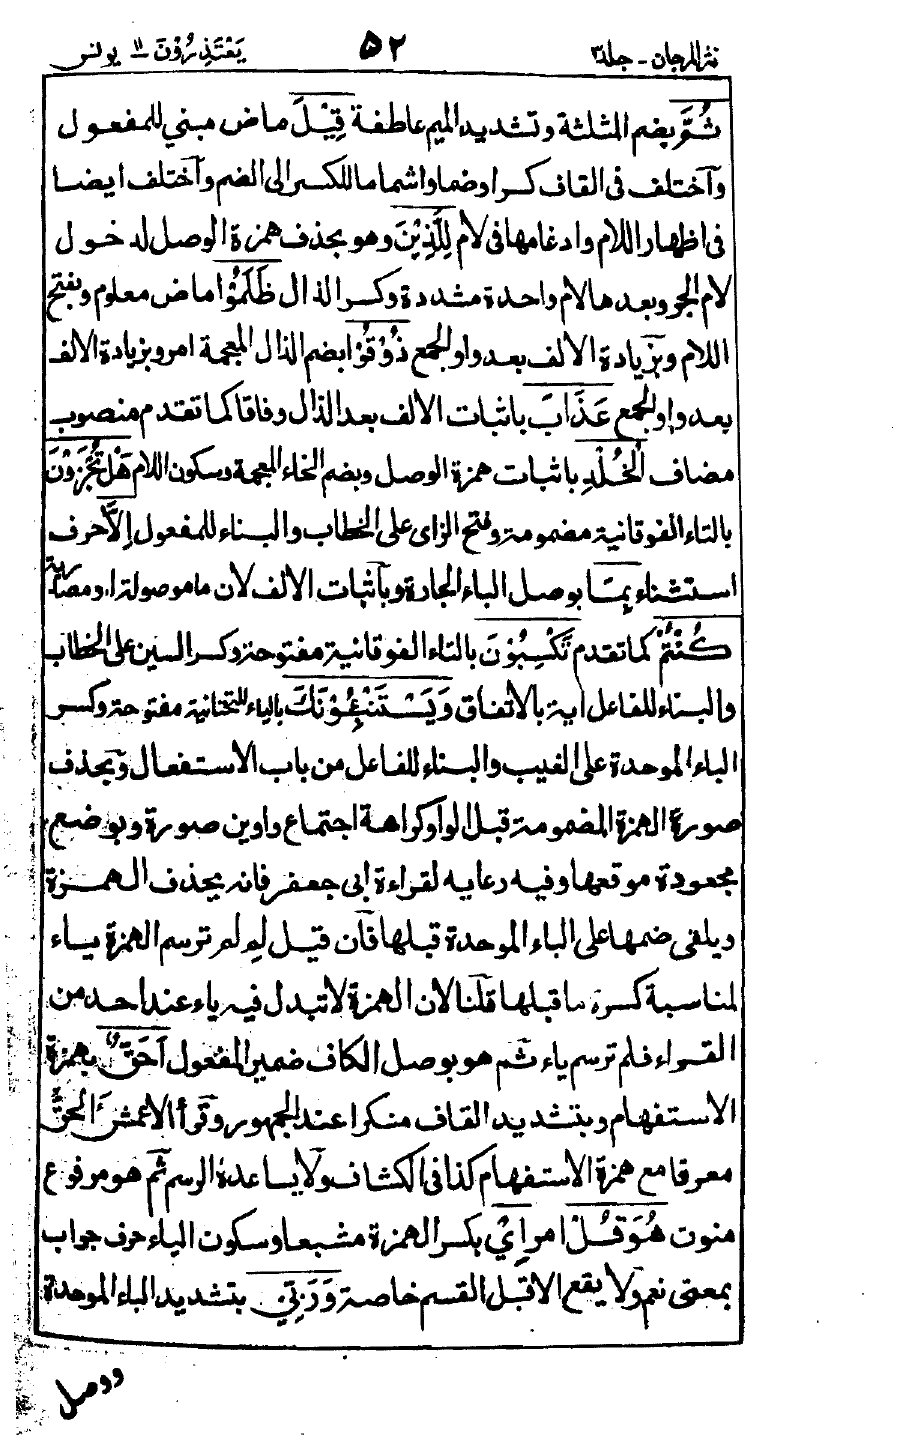 نثر المرجان - جلد ٣
٥٢
يَعْتَذِرُوْنَ ١١ يونس
ثُمَّ بضم المثلثة وتشديد الميم عاطفة قِيْلَ ماض مبني للمفعول
وآختلف فى القاف كسرا وضما واشماما للكسر الى الضم وآختلف ايضا
فى اظهار اللام وادغامها فى لام لِلَّذِيْنَ وهو بحذف همزة الوصل لدخول
لام الجر وبعدها لام واحدة مشددة وكسر الذال ظَلَمُوْا ماض معلوم وبفتح
اللام وبزيادة الالف بعد واو الجمع ذُوْقُوْا بضم الذال المعجمة امر وبزيادة الالف
بعد واو الجمع عَذَابَ باثبات الالف بعد الذال وفاقا كما تقدم منصوب
مضاف الْخُلْدِ باثبات همزة الوصل وبضم الخاء المعجمة وسكون اللام هَلْ تُجْزَوْنَ
بالتاء الفوقانية مضمومة وفتح الزاى على الخطاب والبناء للمفعول اِلَّا حرف
استثناء بِمَا بوصل الباء الجارة وبآثبات الالف لان ما موصولة او مصدرية
كُنْتُمْ كما تقدم تَكْسِبُوْنَ بالتاء الفوقانية مفتوحة وكسر السين على الخطاب
والبناء للفاعل اية بالاتفاق وَيَسْتَنْۢبِـُٔوْنَكَ بالياء التحتانية مفتوحة وكسر
الباء الموحدة على الغيب والبناء للفاعل من باب الاستفعال وبحذف
صورة الهمزة المضمومة قبل الواو كراهة اجتماع واوين صورة وبوضع
مجعودة موقعها وفيه رعاية لقراءة ابى جعفر فانه يحذف الهمزة
ويلقى ضمها على الباء الموحدة قبلها فآن قيل لم لم ترسم الهمزة بياء
لمناسبة كسرة ما قبلها قلنا لان الهمزة لا تبدل فيه ياء عند احد من
القراء فلم ترسم ياء ثم هو بوصل الكاف ضمير المفعول اَحَقٌّ بهمزة
الاستفهام وبتشديد القاف منكرا عند الجمهور وقرأ الاعمش ءَالْحَقُّ
معرفا مع همزة الاستفهام كذا فى الكشاف ولا يساعده الرسم ثم هو مرفوع
منون هُوَ قُلْ امر اِيْ بكسر الهمزة مشبعا وسكون الياء حرف جواب
بمعنى نعم ولا يقع الا قبل القسم خاصة وَرَبِّيْ بتشديد الباء الموحدة
ووصل